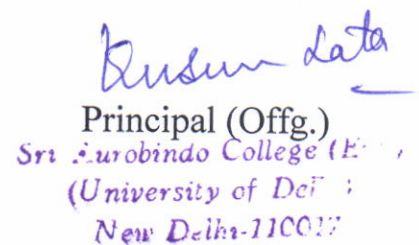 Kusum Lata
Principal (Offg.)
Sri Aurobindo College (E
(University of Del
New Delhi-110017